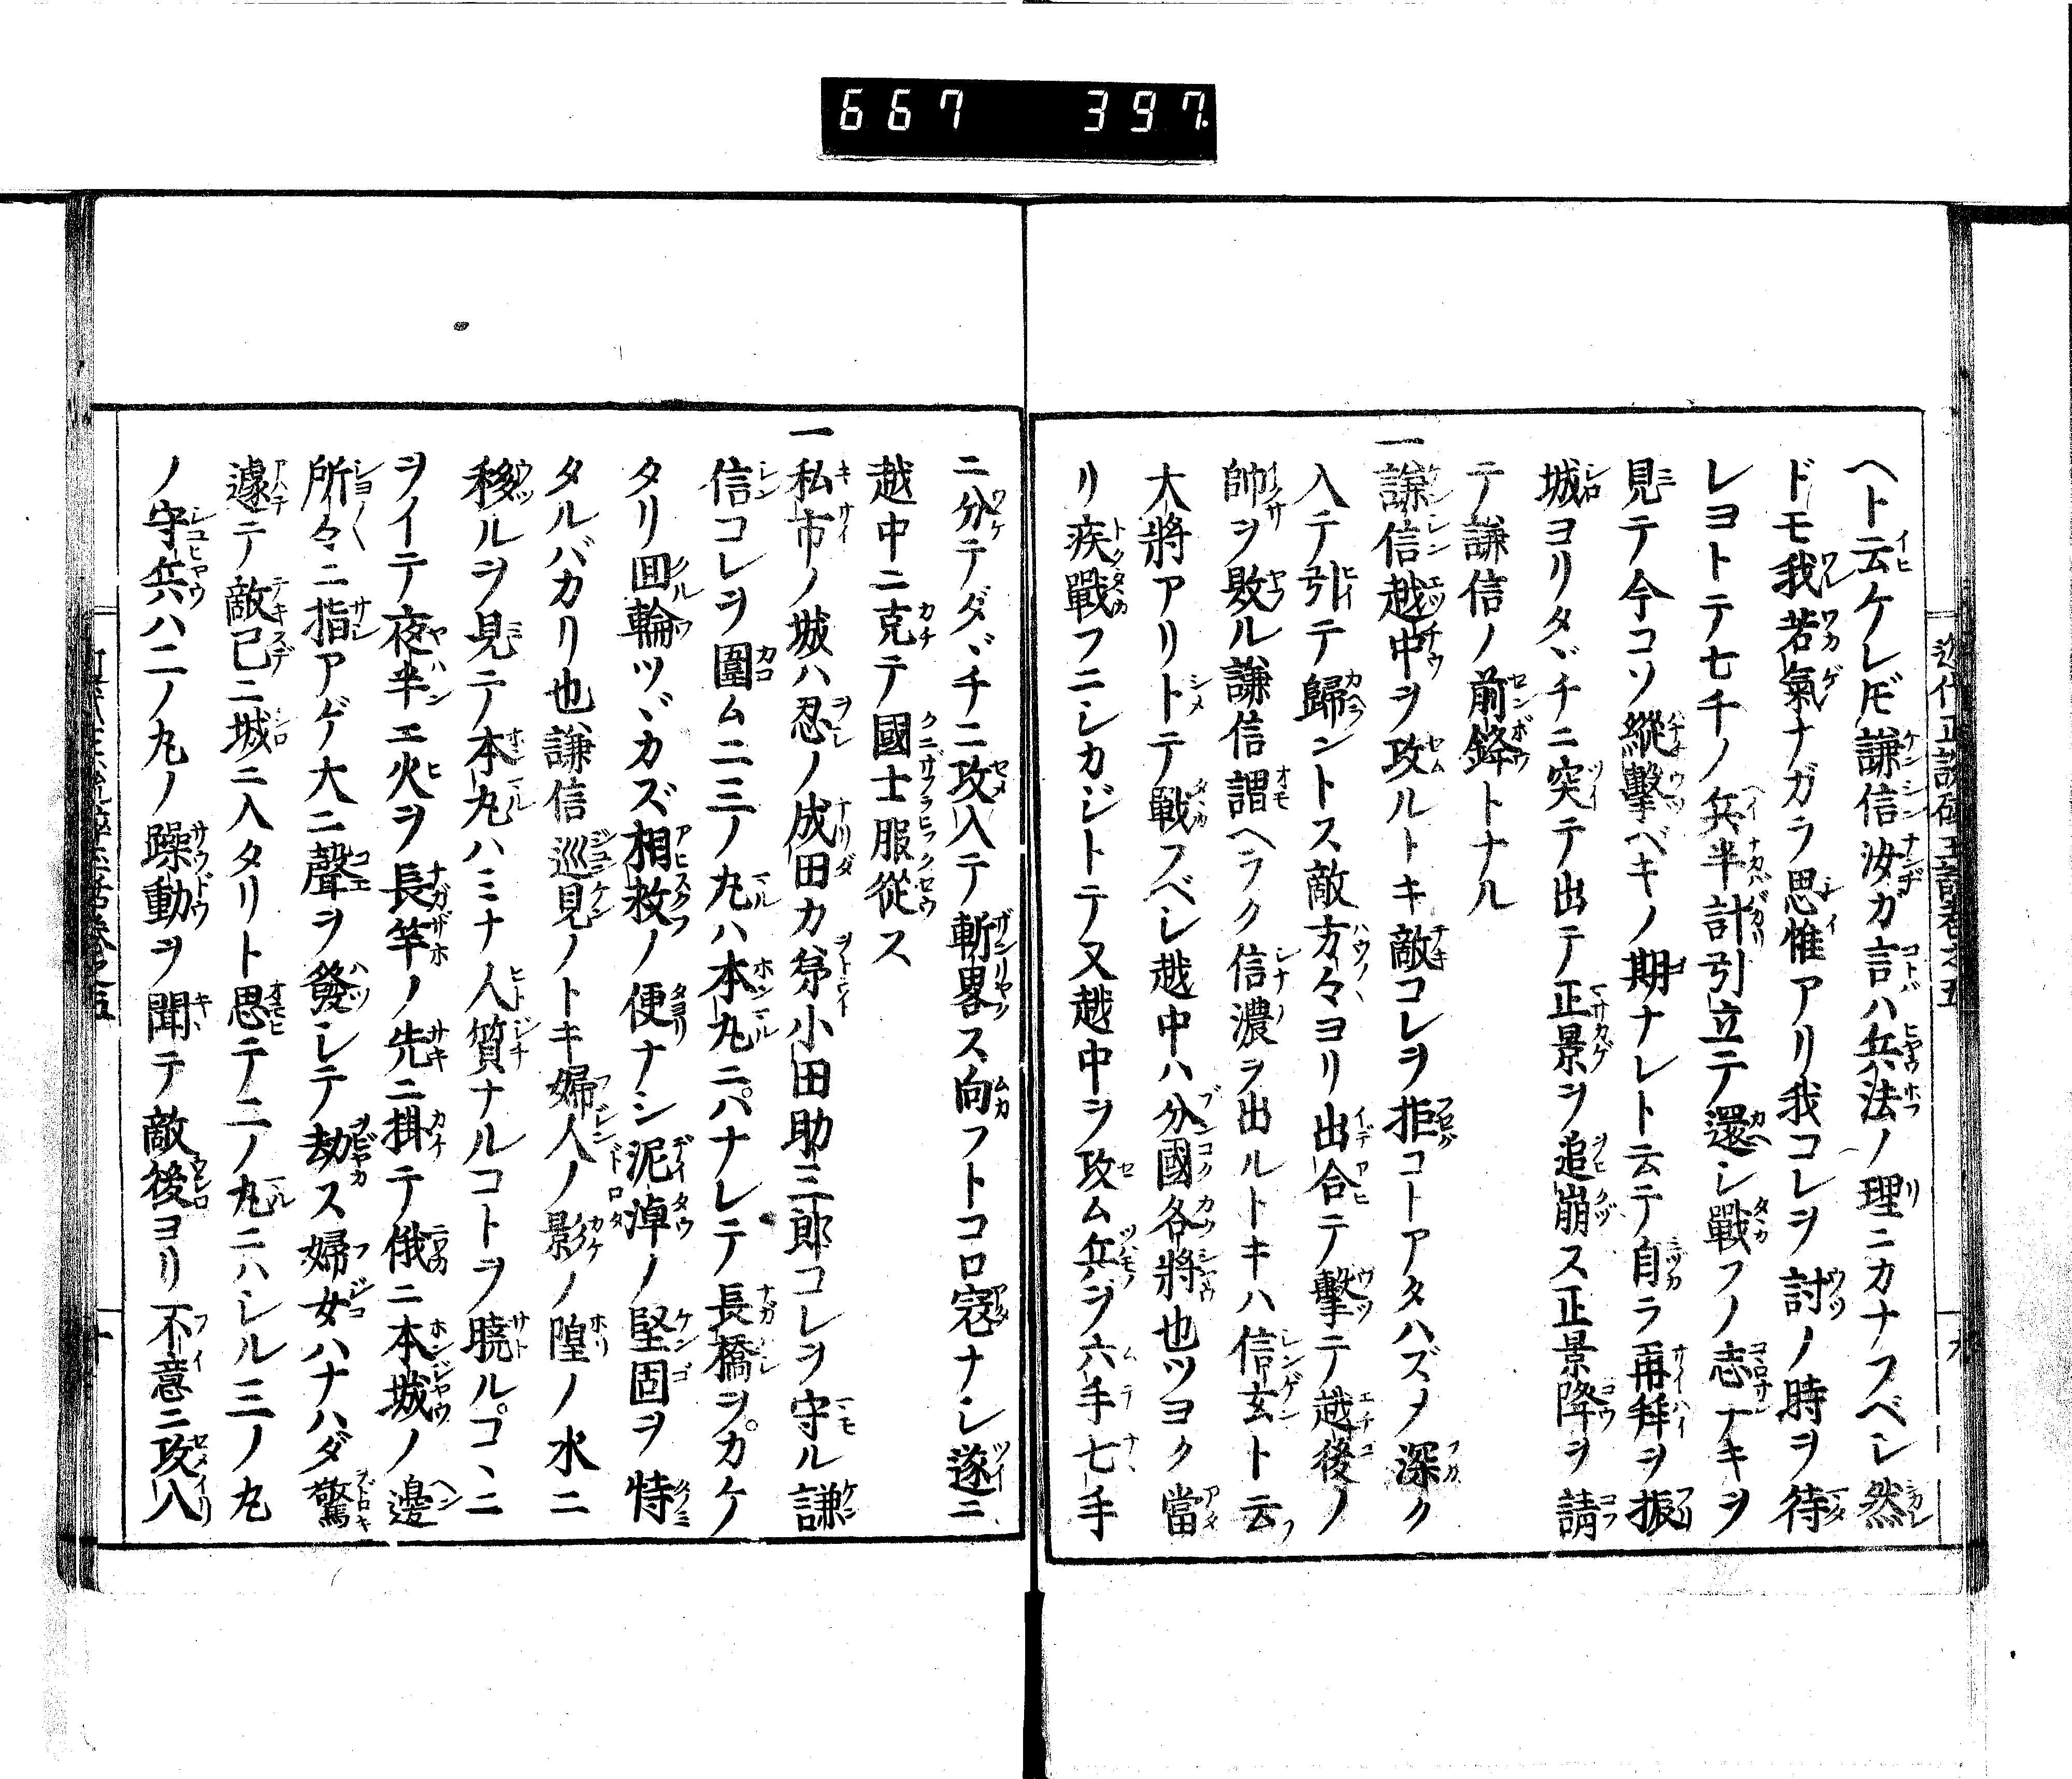 667 397.
ヘト云ケレドモ謙信汝ガ言ハ兵法ノ理ニカナフベシ然
ドモ我若氣ナガラ思惟アリ我コレヲ討ノ時ヲ待
レヨトテ七千ノ兵半計引立テ還シ戰フノ志ナキヲ
見テ今コソ縱擊ベキノ期ナレト云テ自ラ再拜ヲ振
城ヨリタヾチニ突テ出テ正景ヲ追崩ス正景降ヲ請
テ謙信ノ前鋒トナル
一謙信越中ヲ攻ルトキ敵コレヲ拒コトアタハズメ深ク
入テ引テ歸ントス敵方々ヨリ出合テ擊テ越後ノ
帥ヲ敗ル謙信謂ヘラク信濃ヲ出ルトキハ信玄ト云
大將アリトテ戰フベシ越中ハ分國各將也ツヨク當
リ疾戰フニシカジトテ又越中ヲ攻ム兵ヲ六手七手
ニ分テタヾチニ攻入テ斬畧ス向フトコロ寇ナシ遂ニ
越中ニ克テ國士服從ス
一私市ノ城ハ忍ノ成田カ弟小田助三郎コレヲ守ル謙
信コレヲ圍ム二三ノ丸ハ本丸ニハナレテ長橋ヲカケ
タリ囬輪ツヾカズ相救ノ便ナシ泥淖ノ堅固ヲ恃
タルバカリ也謙信巡見ノトキ婦人ノ影ノ隍ノ水ニ
移ルヲ見テ本丸ハミナ人質ナルコトヲ曉ルコヽニ
ヲイテ夜半ニ火ヲ長竿ノ先ニ掛テ俄ニ本城ノ邊
所々ニ指アゲ大ニ聲ヲ發シテ劫ス婦女ハナハダ驚
遽テ敵已ニ城ニ入タリト思テ二ノ丸ニハシル三ノ丸
ノ守兵ハ二ノ丸ノ躁動ヲ聞テ敵後ヨリ不意ニ攻入